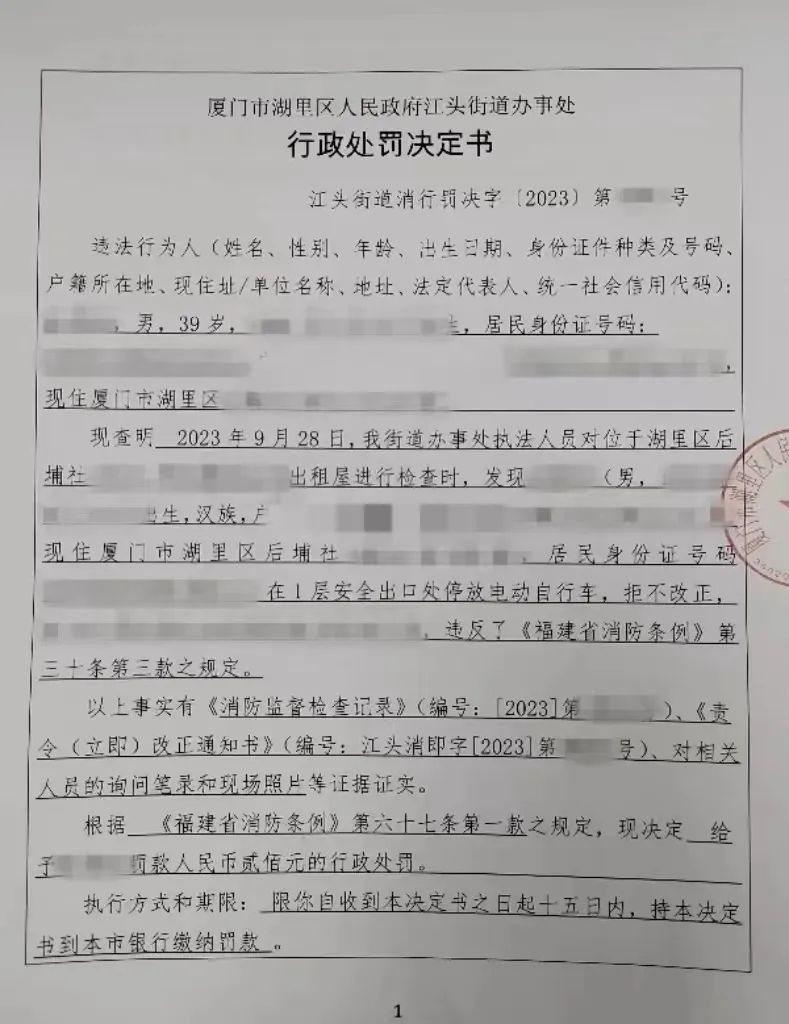 厦门市湖里区人民政府江头街道办事处
行政处罚决定书
江头街道消行罚决字〔2023〕第 号
违法行为人（姓名、性别、年龄、出生日期、身份证件种类及号码、
户籍所在地、现住址/单位名称、地址、法定代表人、统一社会信用代码）：
，男，39岁， 生，居民身份证号码：
，
现住厦门市湖里区
现查明 2023年9月28日，我街道办事处执法人员对位于湖里区后
埔社 出租屋进行检查时，发现 （男，
出生，汉族，户
现住厦门市湖里区后埔社 ，居民身份证号码
在1层安全出口处停放电动自行车，拒不改正，
，违反了《福建省消防条例》第
三十条第三款之规定。
以上事实有《消防监督检查记录》（编号：[2023]第 ）、《责
令（立即）改正通知书》（编号：江头消即字[2023]第 号）、对相关
人员的询问笔录和现场照片等证据证实。
根据 《福建省消防条例》第六十七条第一款之规定，现决定 给
予 罚款人民币贰佰元的行政处罚。
执行方式和期限： 限你自收到本决定书之日起十五日内，持本决定
书到本市银行缴纳罚款 。
1
厦门市湖里区人民